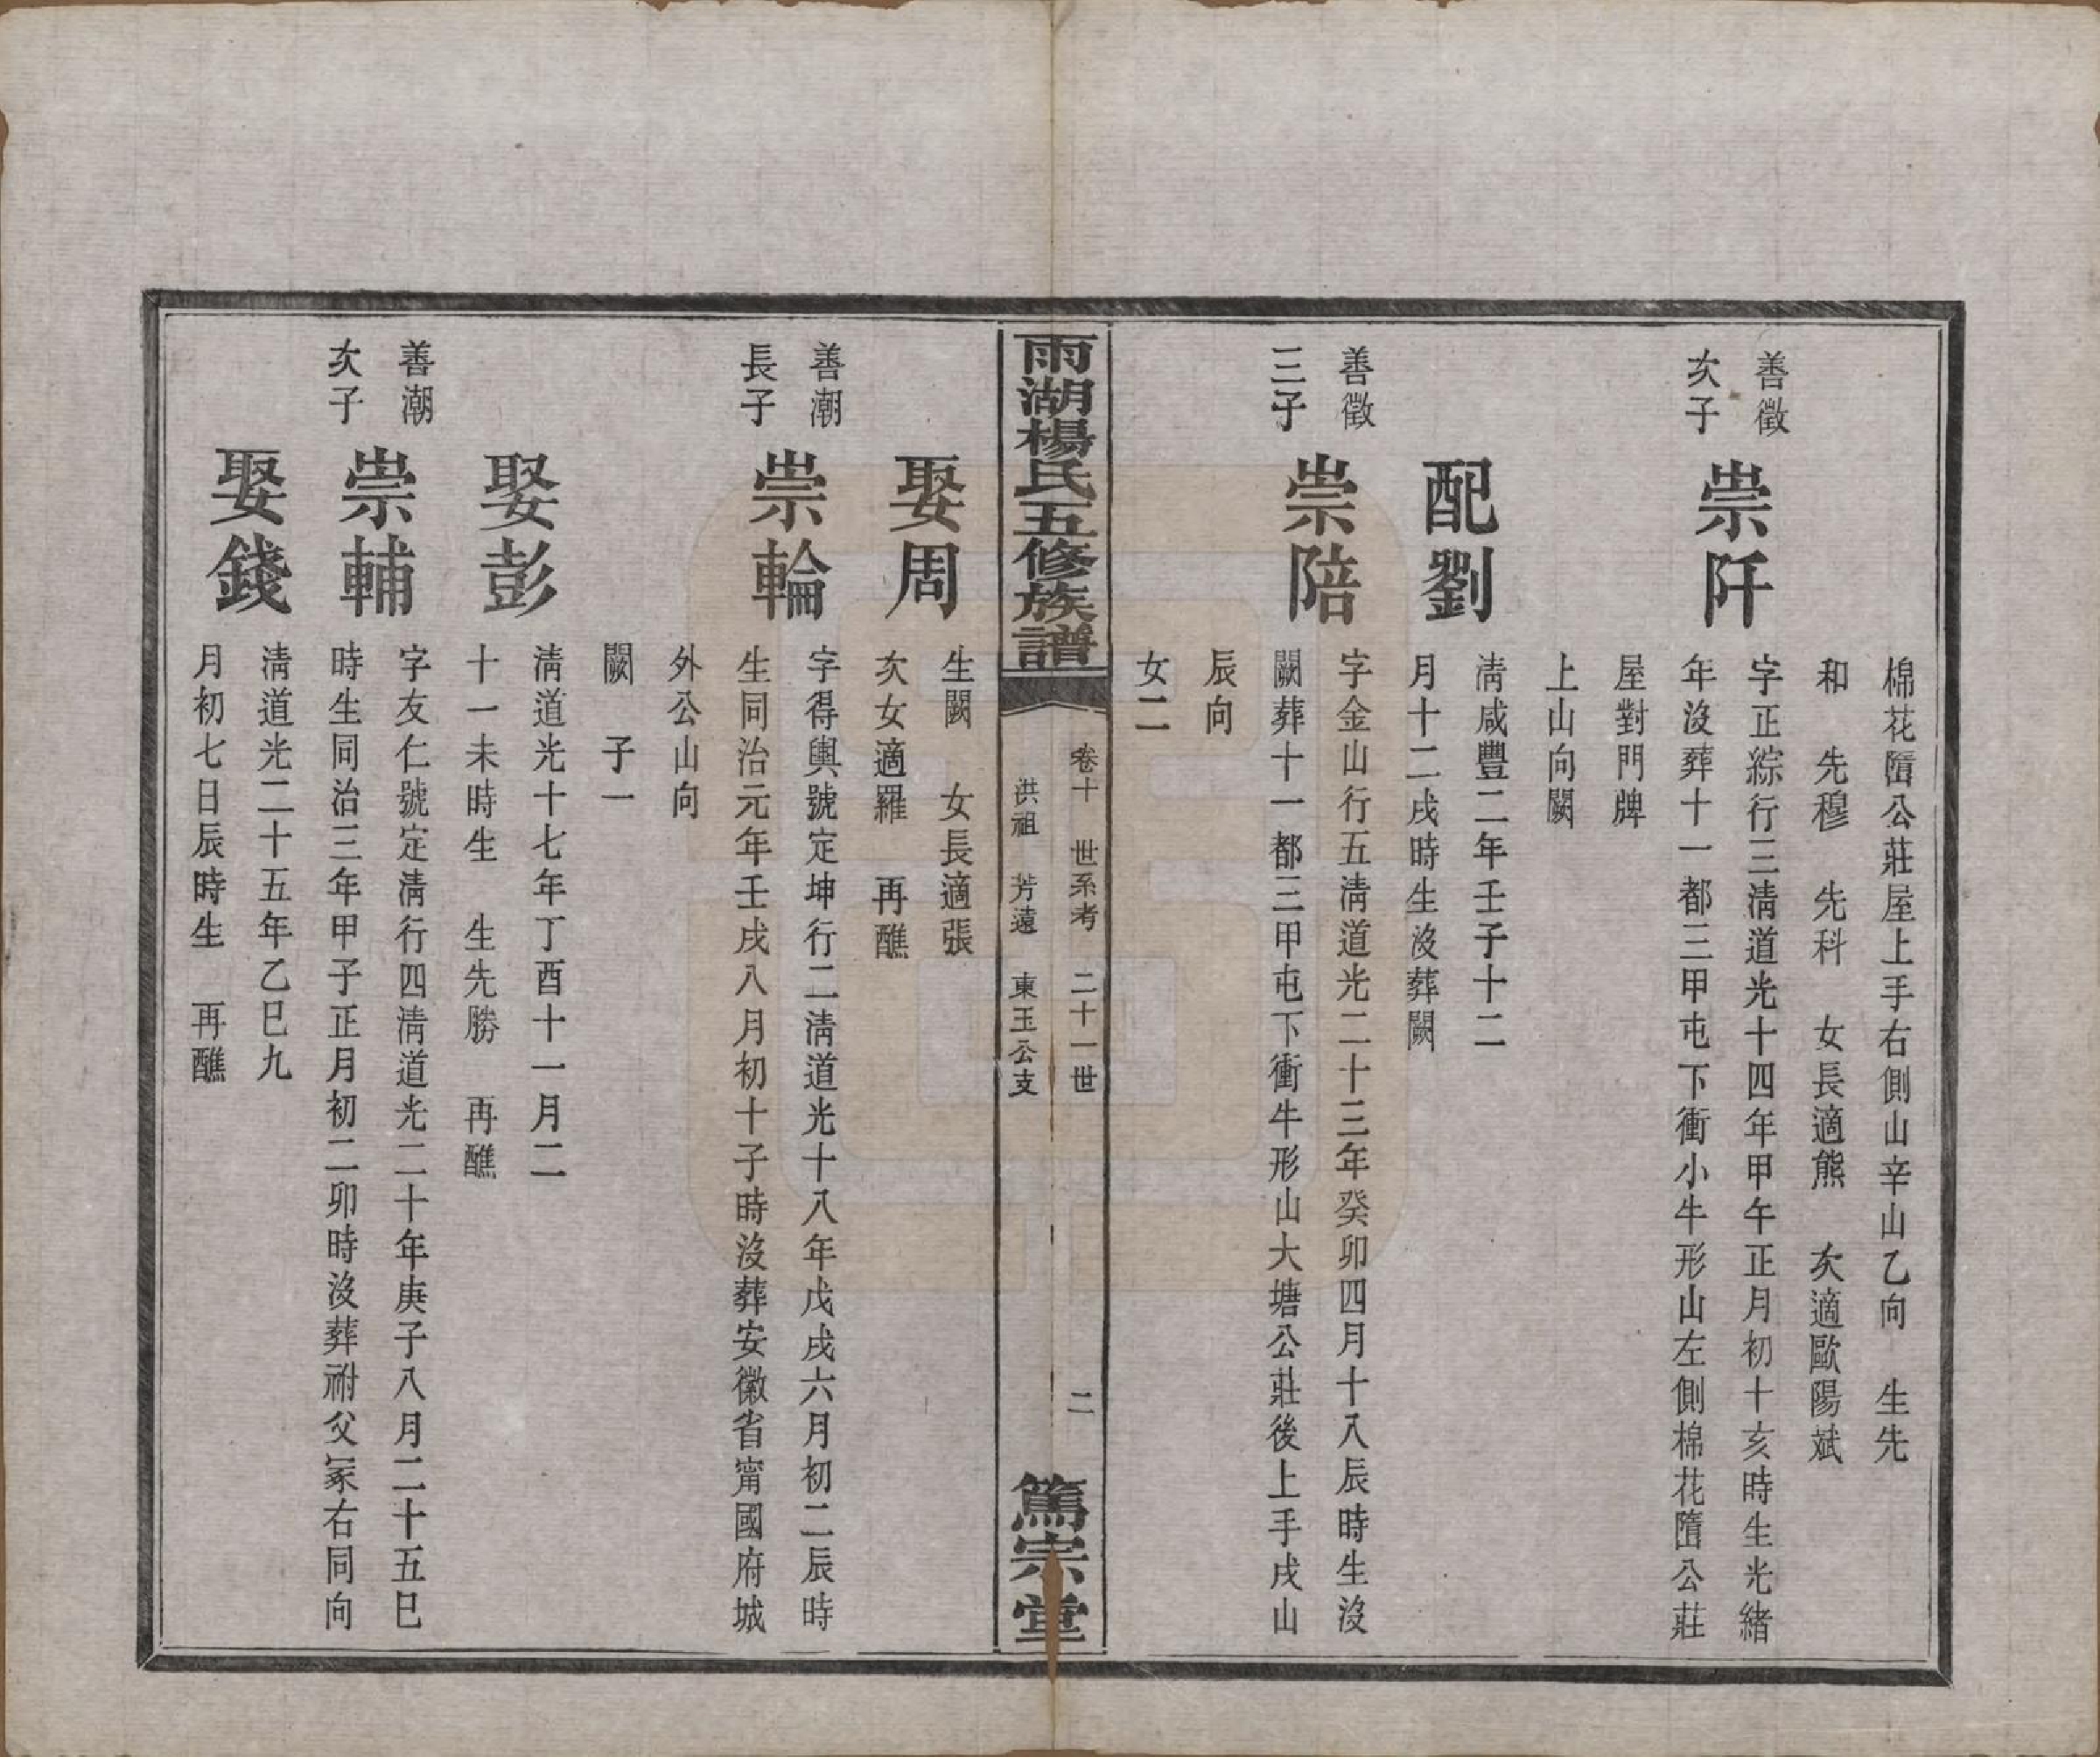 棉花㙐公莊屋上手右側山辛山乙向　生先
和　先穆　先科　女長適熊　次適歐陽斌
善徵
次子
崇阡
字正綜行三淸道光十四年甲午正月初十亥時生光緒
年沒葬十一都三甲屯下衝小牛形山左側棉花㙐公莊
屋對門牌
上山向闕
配劉
淸咸豐二年壬子十二
月十二戌時生沒葬闕
善徵
三子
崇陪
字金山行五淸道光二十三年癸卯四月十八辰時生沒
闕葬十一都三甲屯下衝牛形山大塘公莊後上手戌山
辰向
女二
雨湖楊氏五修族譜
卷十　世系考　二十一世
洪祖　芳遠　東玉公支
二
篤宗堂
娶周
生闕　女長適張
次女適羅　再醮
善潮
長子
崇輪
字得輿號定坤行二淸道光十八年戊戌六月初二辰時
生同治元年壬戌八月初十子時沒葬安徽省甯國府城
外公山向
闕　子一
娶彭
淸道光十七年丁酉十一月二
十一未時生　生先勝　再醮
善潮
次子
崇輔
字友仁號定淸行四淸道光二十年庚子八月二十五巳
時生同治三年甲子正月初二卯時沒葬祔父冢右同向
娶錢
淸道光二十五年乙巳九
月初七日辰時生　再醮